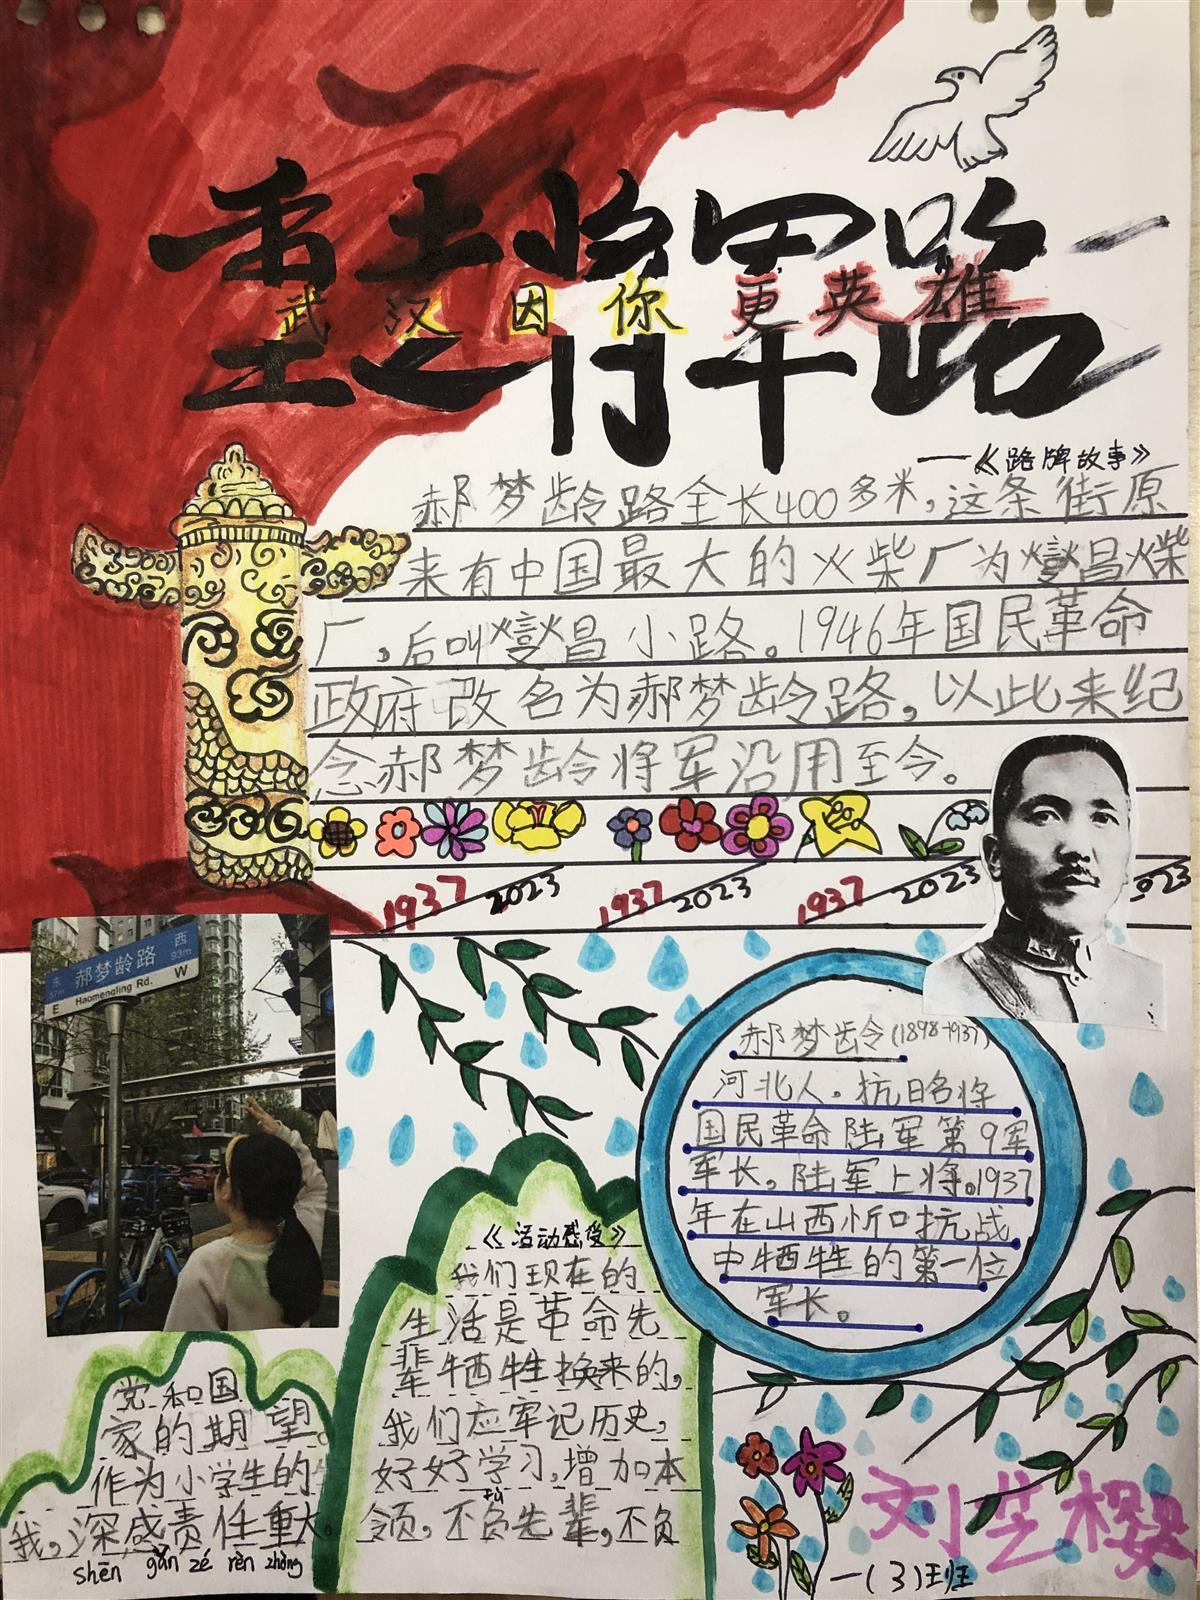 重走将军路
武汉因你更英雄
——《路牌故事》
郝梦龄路全长400多米，这条街原
来有中国最大的火柴厂为燮昌火柴
厂，后叫燮昌小路。1946年国民革命
政府改名为郝梦龄路，以此来纪
念郝梦龄将军沿用至今。
1937 2023 1937 2023 1937 2023 2023
东 郝梦龄路 西
57m 93m
E Haomengling Rd. W
郝梦龄(1898-1937)
河北人。抗日名将
国民革命陆军第9军
军长，陆军上将。1937
年在山西忻口抗战
中牺牲的第一位
军长。
《活动感受》
我们现在的
生活是革命先
辈牺牲换来的，
我们应牢记历史，
好好学习，增加本
领，不负先辈，不负
fù
党和国
家的期望。
作为小学生的
我，深感责任重大。
shēn gǎn zé rèn zhòng
刘芝樱
一(3)班